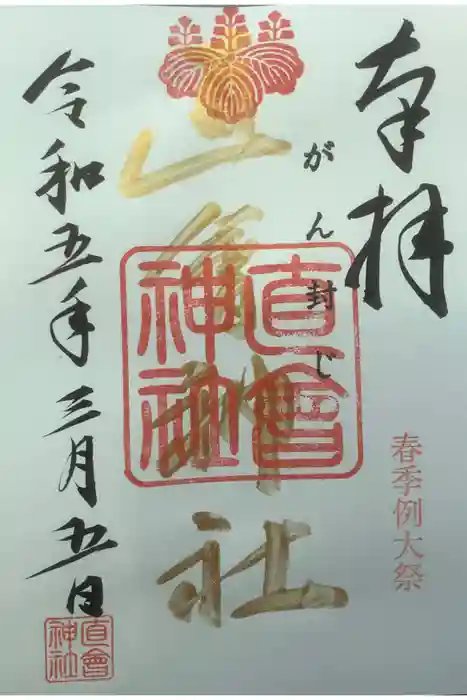 奉拝
春季例大祭
がん封じ
直會神社
直會神社
令和五年三月五日
直會神社